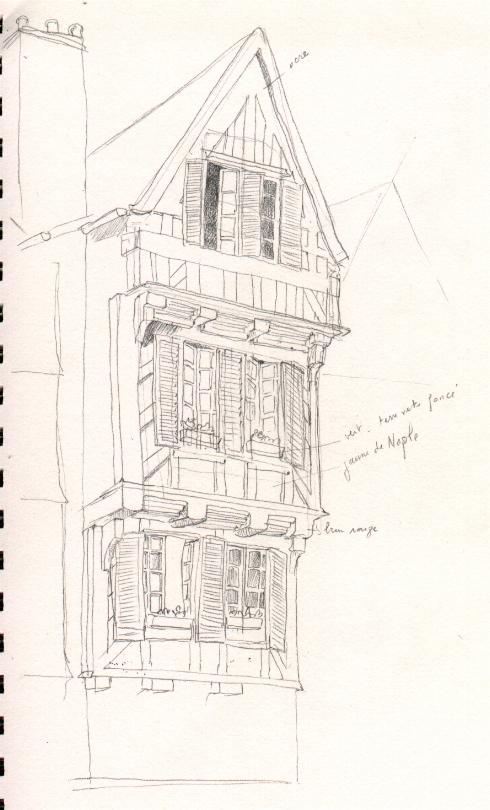 ocre
vert - terre verte foncé
jaune de Naple
brun rouge